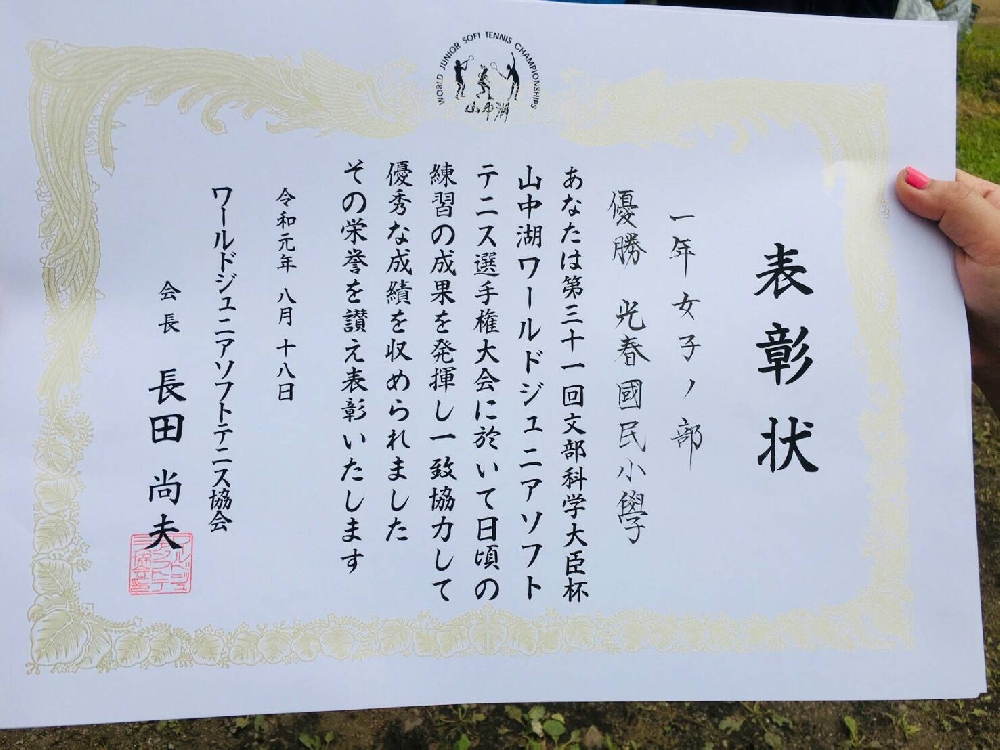 WORLD JUNIOR SOFT TENNIS CHAMPIONSHIPS
山中湖
表彰状
一年女子ノ部
優勝 光春國民小學
あなたは第三十一回文部科学大臣杯
山中湖ワールドジュニアソフト
テニス選手権大会に於いて日頃の
練習の成果を発揮し一致協力して
優秀な成績を収められました
その栄誉を讃え表彰いたします
令和元年 八月 十八日
ワールドジュニアソフトテニス協会
会長 長田 尚夫